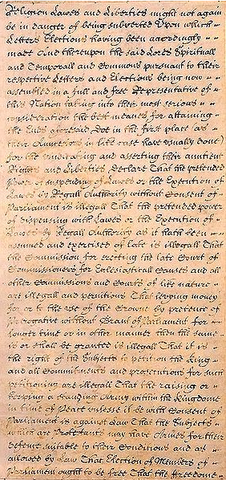 Religion Lawes and Liberties might not againe
be in danger of being subverted Upon which
Letters Elections having been accordingly
made And thereupon the said Lords Spirituall
and Temporall and Commons pursuant to their
respective Letters and Elections being now
assembled in a full and free Representative of
this Nation taking into their most serious
consideration the best meanes for attaining
the Ends aforesaid Doe in the first place as
their Auncestors in like case have usually done
for the vindicating and asserting their auntient
Rights and Liberties, Declare That the pretended
Power of suspending of Lawes or the Execution of
Lawes by Regall Authority without Consent of
Parliament is illegall That the pretended power
of dispensing with Lawes or the Execution of
Lawes by Regall Authority as it hath been
assumed and exercised of late is illegall That
the Commission for erecting the late Court of
Commissioners for Ecclesiasticall Causes and all
other Commissions and Courts of like nature
are illegall and pernitious That levying money
for or to the use of the Crowne by pretence of
Prerogative without Grant of Parliament for
longer time or in other manner then the same
is or shall be granted is illegall That it is
the right of the Subjects to petition the King
and all Commitments and prosecutions for such
petitioning are illegall That the raising or
keeping a standing Army within the Kingdome
in time of Peace unlesse it be with Consent of
Parliament is against Law That the Subjects
which are Protestants may have Armes for their
Defence suitable to their Conditions and as
allowed by Law That Election of Members of
Parliament ought to be free That the freedome